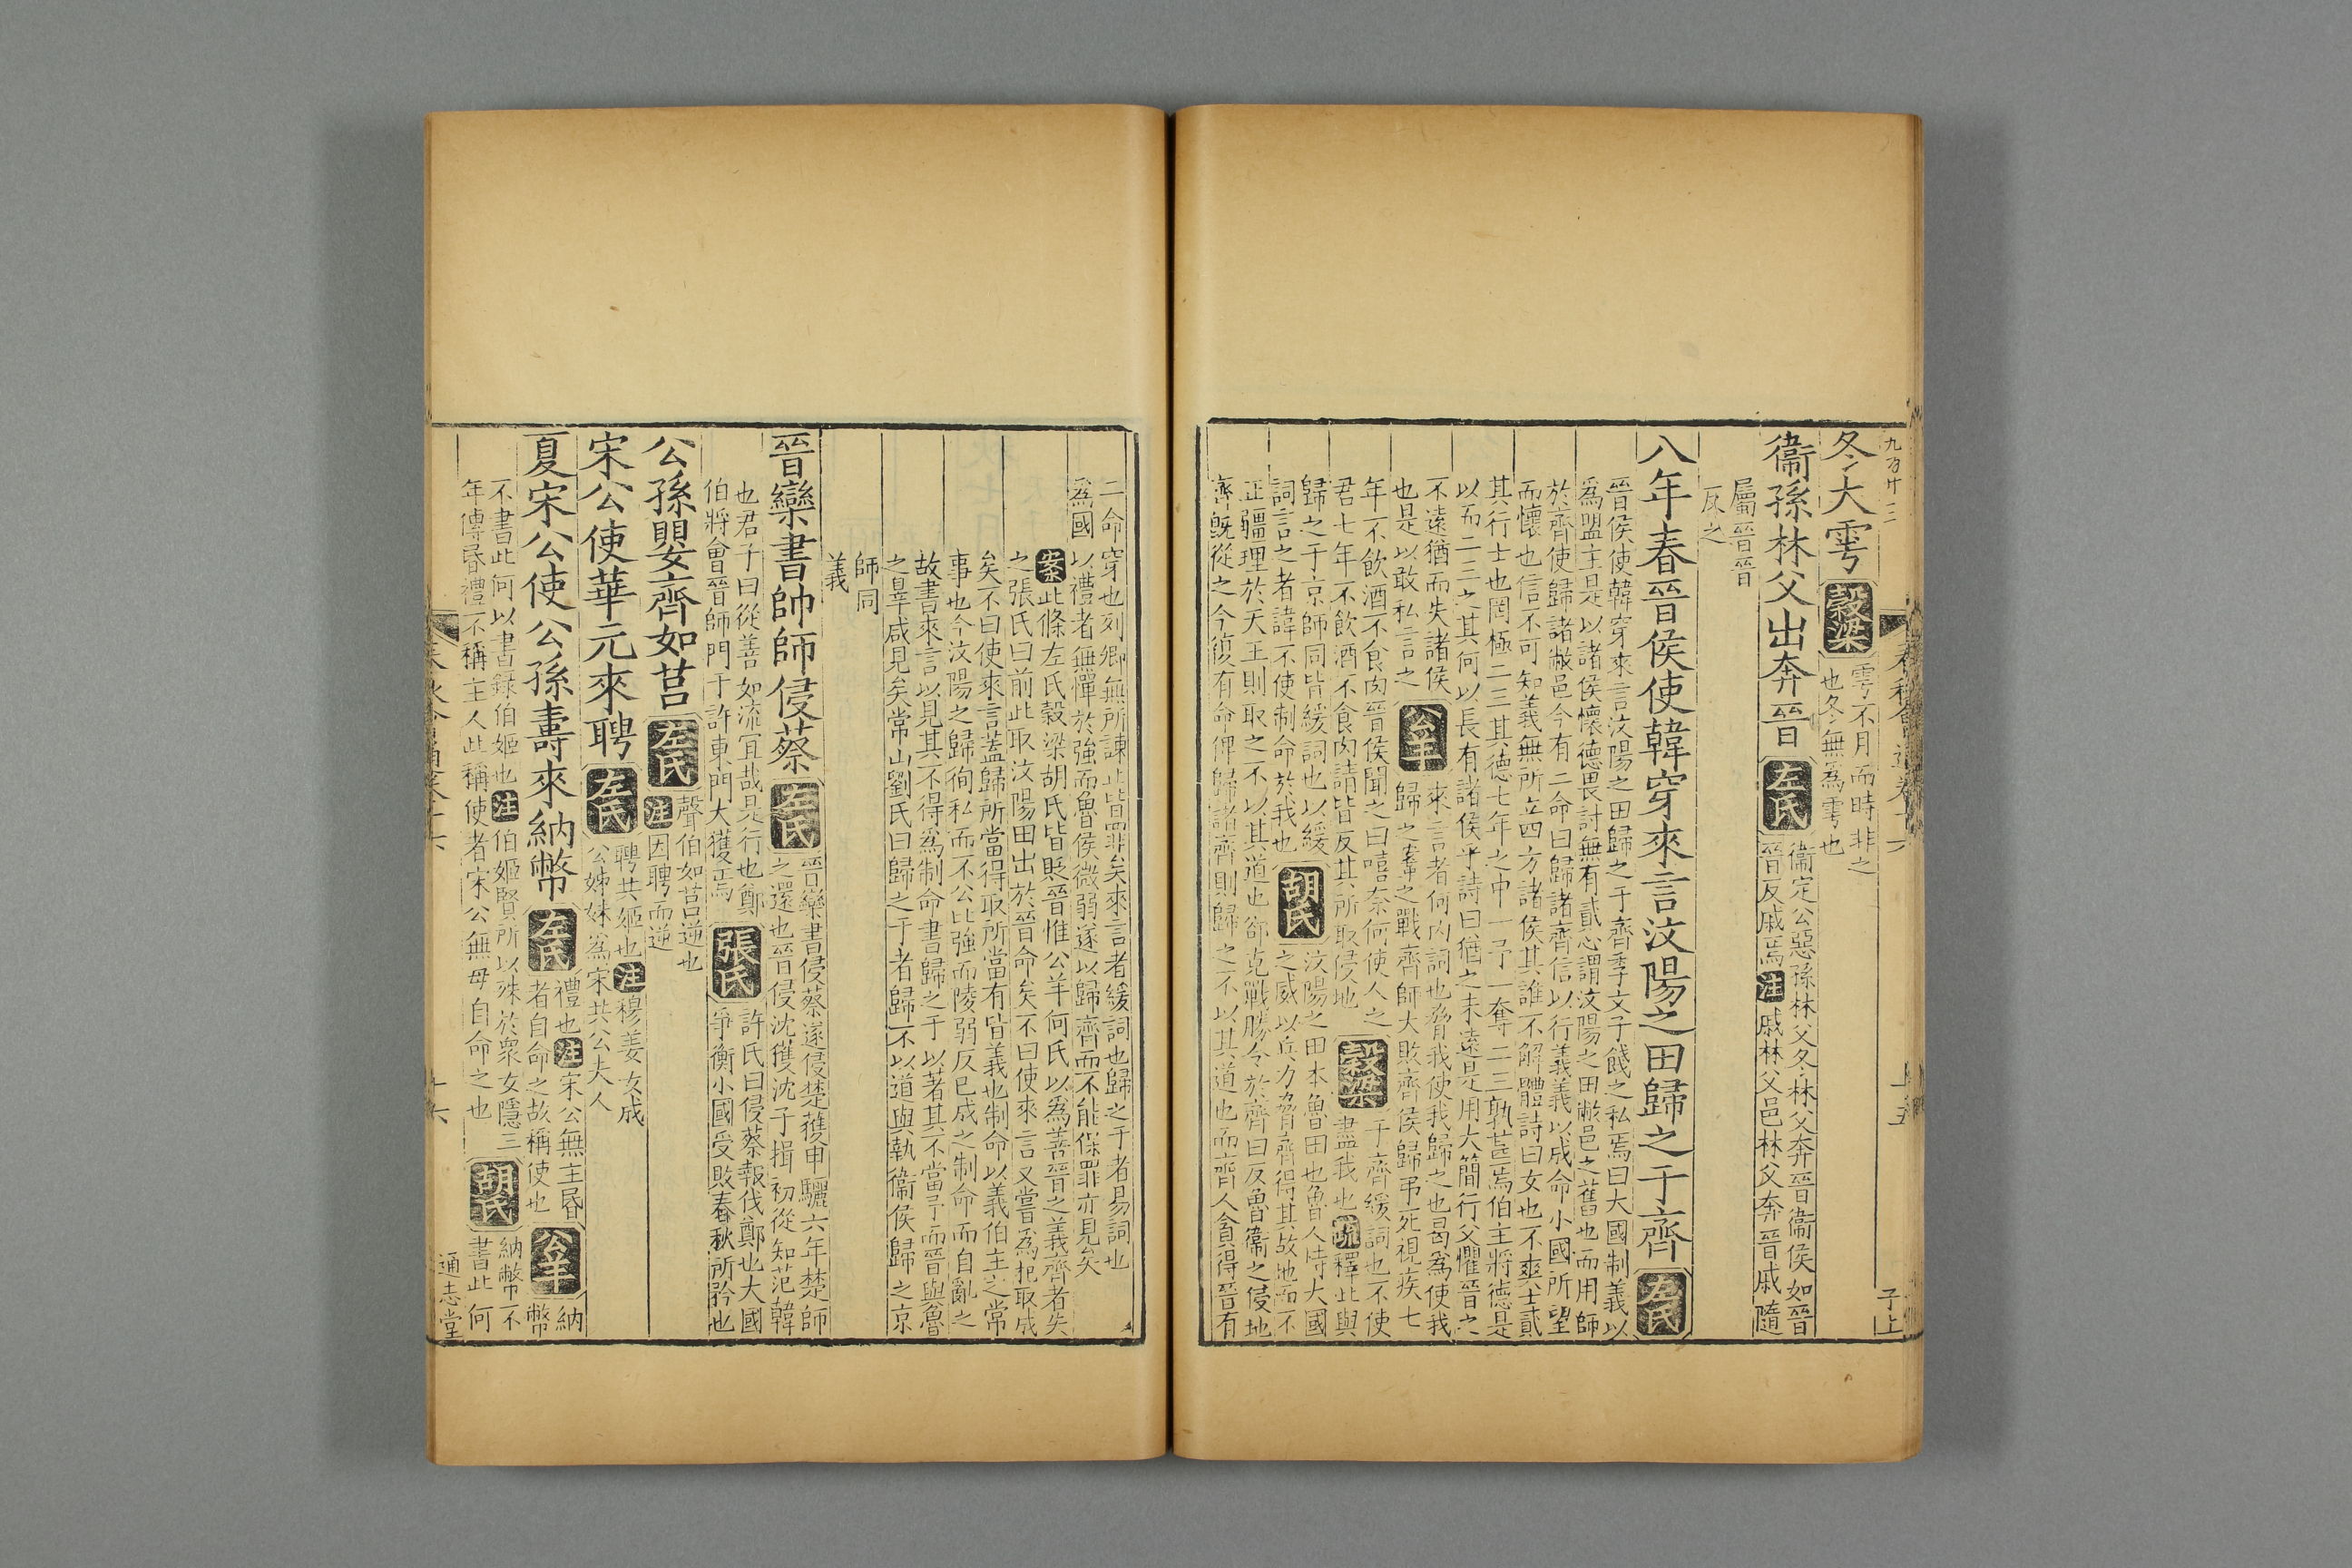 冬大雩穀梁雩不月而時非之
也冬無為雩也
衞孫林父出奔晉左氏衞定公惡孫林父冬林父奔晉衞侯如晉
晉反戚焉注戚林父邑林父奔晉戚隨
屬晉晉
反之
八年春晉侯使韓穿來言汶陽之田歸之于齊左氏
晉侯使韓穿來言汶陽之田歸之于齊季文子餞之私焉曰大國制義以
為盟主是以諸侯懷德畏討無有貳心謂汶陽之田敝邑之舊也而用師
於齊使歸諸敝邑今有二命曰歸諸齊信以行義義以成命小國所望
而懷也信不可知義無所立四方諸侯其誰不解體詩曰女也不爽士貳
其行士也罔極二三其德七年之中一予一奪二三孰甚焉伯主將德是
以而二三之其何以長有諸侯乎詩曰猶之未遠是用大簡行父懼晉之
不遠猶而失諸侯
也是以敢私言之公羊來言者何内詞也脅我使我歸之也曷為使我
歸之鞌之戰齊師大敗齊侯歸弔死視疾七
年不飲酒不食肉晉侯聞之曰嘻奈何使人之
君七年不飲酒不食肉請皆反其所取侵地穀梁于齊緩詞也不使
盡我也疏釋此與
歸之于京師同皆緩詞也以緩
詞言之者諱不使制命於我也胡氏汶陽之田本魯田也魯人恃大國
之威以兵力脅齊得其故地而不
正疆理於天王則取之不以其道也郤克戰勝令於齊曰反魯衞之侵地
齊旣從之今復有命俾歸諸齊則歸之不以其道也而齊人貪得晉有
二命穿也列卿無所諫止皆罪矣來言者緩詞也歸之于者易詞也
為國以禮者無憚於強而魯侯微弱遂以歸齊而不能保罪亦見矣
案此條左氏穀梁胡氏皆貶晉惟公羊何氏以為善晉之義齊者失
之張氏曰前此取汶陽田出於晉命矣不曰使來言又嘗為把取成
矣不曰使來言蓋歸所當得取所當有皆義也制命以義伯主之常
事也今汶陽之歸徇私而不公比強而陵弱反已成之制命而自亂之
故書來言以見其不得為制命書歸之于以著其不當予而晉與魯
之辠咸見矣常山劉氏曰歸之于者歸不以道與執衞侯歸之京
師同
義
晉欒書帥師侵蔡左氏晉欒書侵蔡遂侵楚獲申驪六年楚師
之還也晉侵沈獲沈子揖初從知范韓
也君子曰從善如流宜哉是行也鄭
伯將會晉師門于許東門大獲焉張氏許氏曰侵蔡報伐鄭也大國
爭衡小國受敗春秋所矜也
公孫嬰齊如莒左氏聲伯如莒逆也
注因聘而逆
宋公使華元來聘左氏聘共姬也注穆姜女成
公姊妹為宋共公夫人
夏宋公使公孫壽來納幣左氏禮也注宋公無主昬
者自命之故稱使也公羊納
幣
不書此何以書錄伯姬也注伯姬賢所以殊於衆女隱三
年傳昬禮不稱主人此稱使者宋公無母自命之也胡氏納幣不
書此何
通志堂